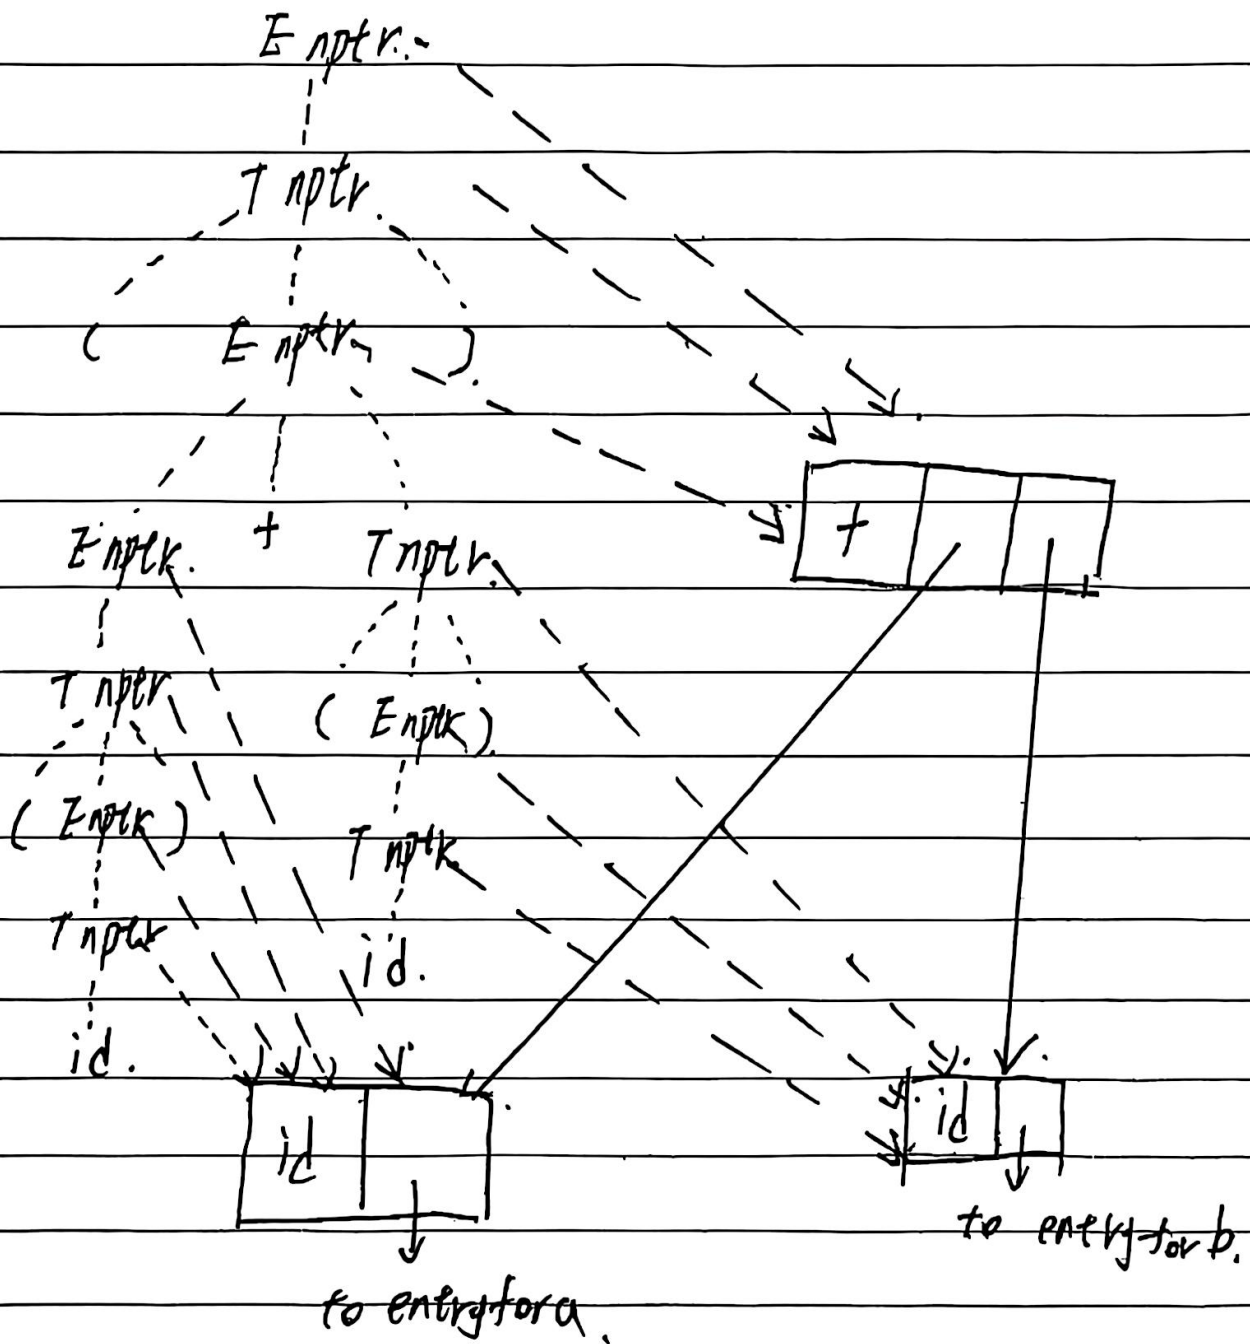 E nptr.
T nptr.
( E nptr. )
E nptr. + T nptr. +
T nptr ( E nptr )
( E nptr ) T nptr
T nptr id.
id.
id id
to entry for b.
to entry for a.